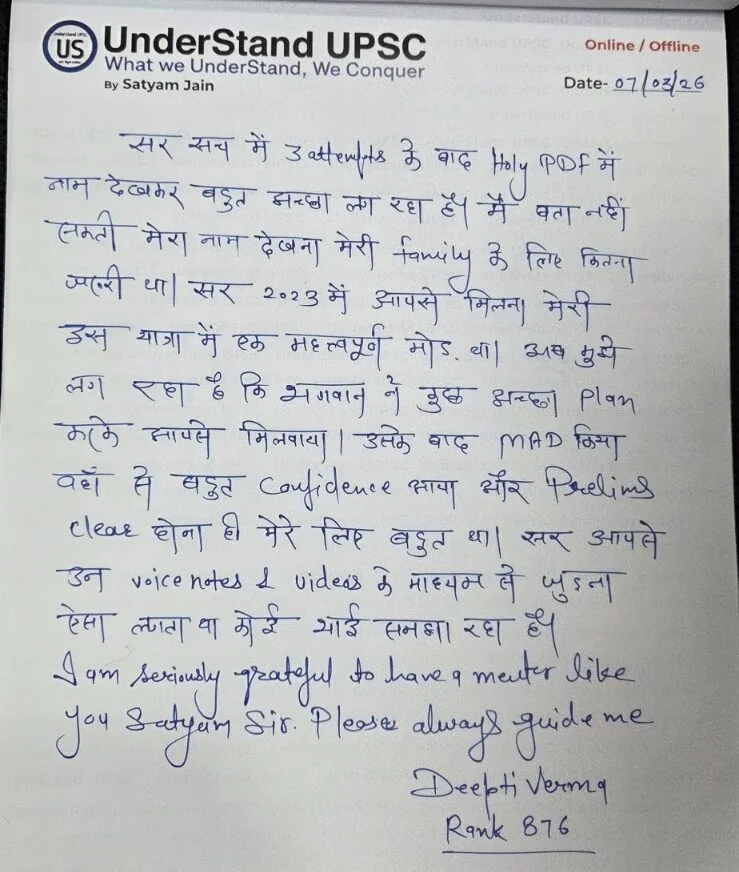 US
UnderStand UPSC
What we UnderStand, We Conquer
By Satyam Jain
Online / Offline
Date- 07/03/26
सर सच में 3 attempts के बाद Holy PDF में
नाम देखकर बहुत अच्छा लग रहा है। मैं बता नहीं
सकती मेरा नाम देखना मेरी family के लिए कितना
जरूरी था। सर 2023 में आपसे मिलना मेरी
इस यात्रा में एक महत्त्वपूर्ण मोड़ था। अब मुझे
लग रहा है कि भगवान ने कुछ अच्छा Plan
करके आपसे मिलवाया। उसके बाद MAD किया
वहाँ से बहुत Confidence आया और Prelims
clear होना ही मेरे लिए बहुत था। सर आपसे
उन voice notes & videos के माध्यम से जुड़ना
ऐसा लगता था कोई भाई समझा रहा है।
I am seriously grateful to have a mentor like
you Satyam Sir. Please always guide me
Deepti Verma
Rank 876